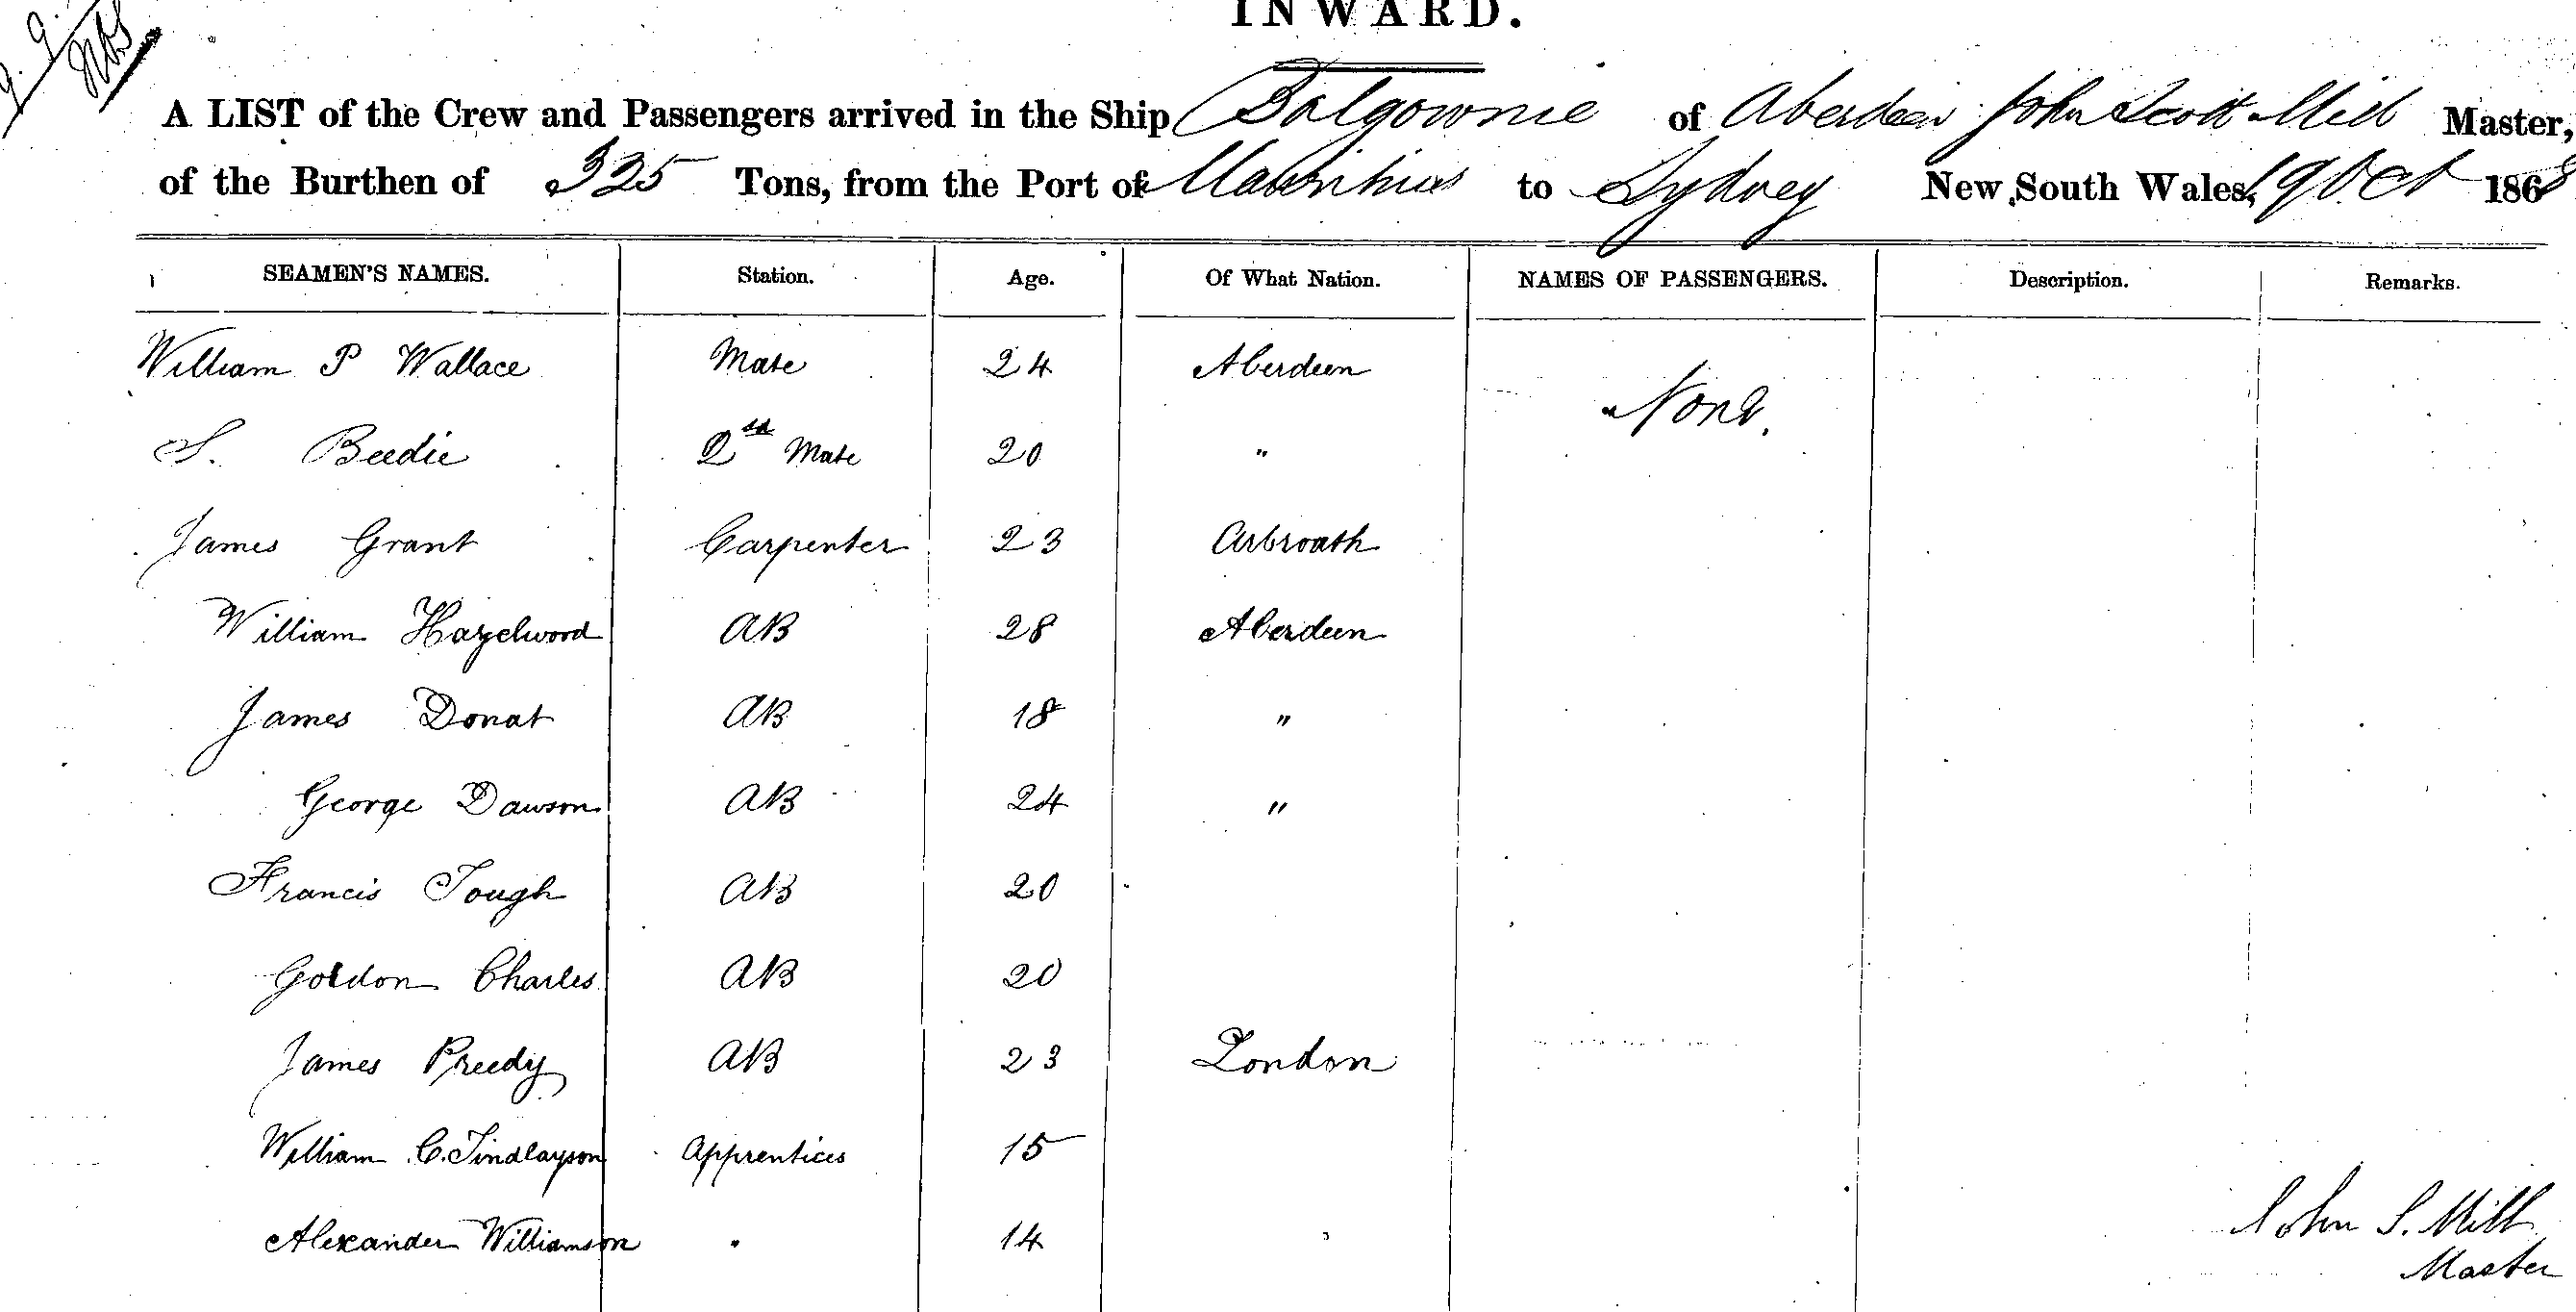 INWARD.
A LIST of the Crew and Passengers arrived in the Ship Balgownie of Aberdeen John Scott Mill Master,
of the Burthen of 325 Tons, from the Port of Mauritius to Sydney New South Wales, 19 Oct 1868
SEAMEN'S NAMES. Station. Age. Of What Nation. NAMES OF PASSENGERS. Description. Remarks.
William P Wallace Mate 24 Aberdeen
None.
S. Beedie 2nd Mate 20 "
James Grant Carpenter 23 Arbroath
William Hazelwood AB 28 Aberdeen
James Donat AB 18 "
George Dawson AB 24 "
Francis Tough AB 20
Gordon Charles AB 20
James Preedy AB 23 London
William C. Findlayson Apprentices 15
Alexander Williamson " 14
John S. Mill
Master